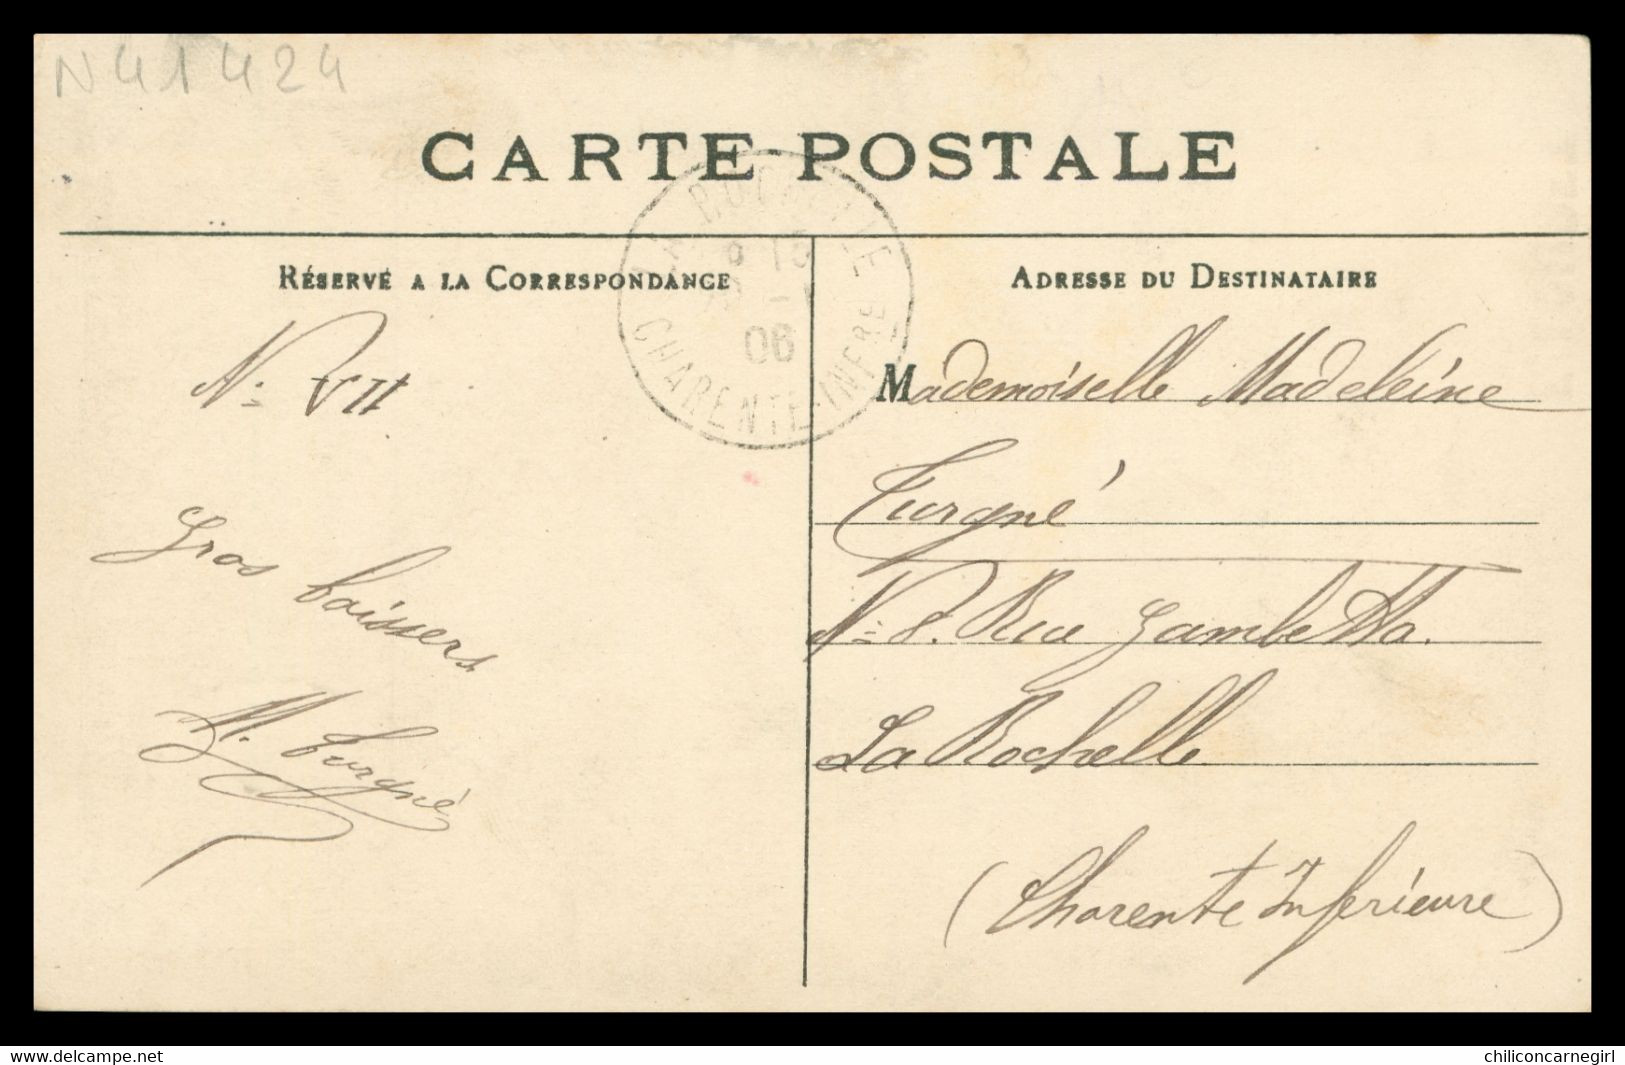 N 41424
CARTE POSTALE
RÉSERVÉ A LA CORRESPONDANCE
ADRESSE DU DESTINATAIRE
LA ROCHELLE
15
06
CHARENTE-INFRE
N= VII
Gros baisers
M. Turgné
Mademoiselle Madeleine
Turgné
N= 8. Rue Gambetta.
La Rochelle
(Charente Inférieure)
www.delcampe.net
chiliconcarnegirl